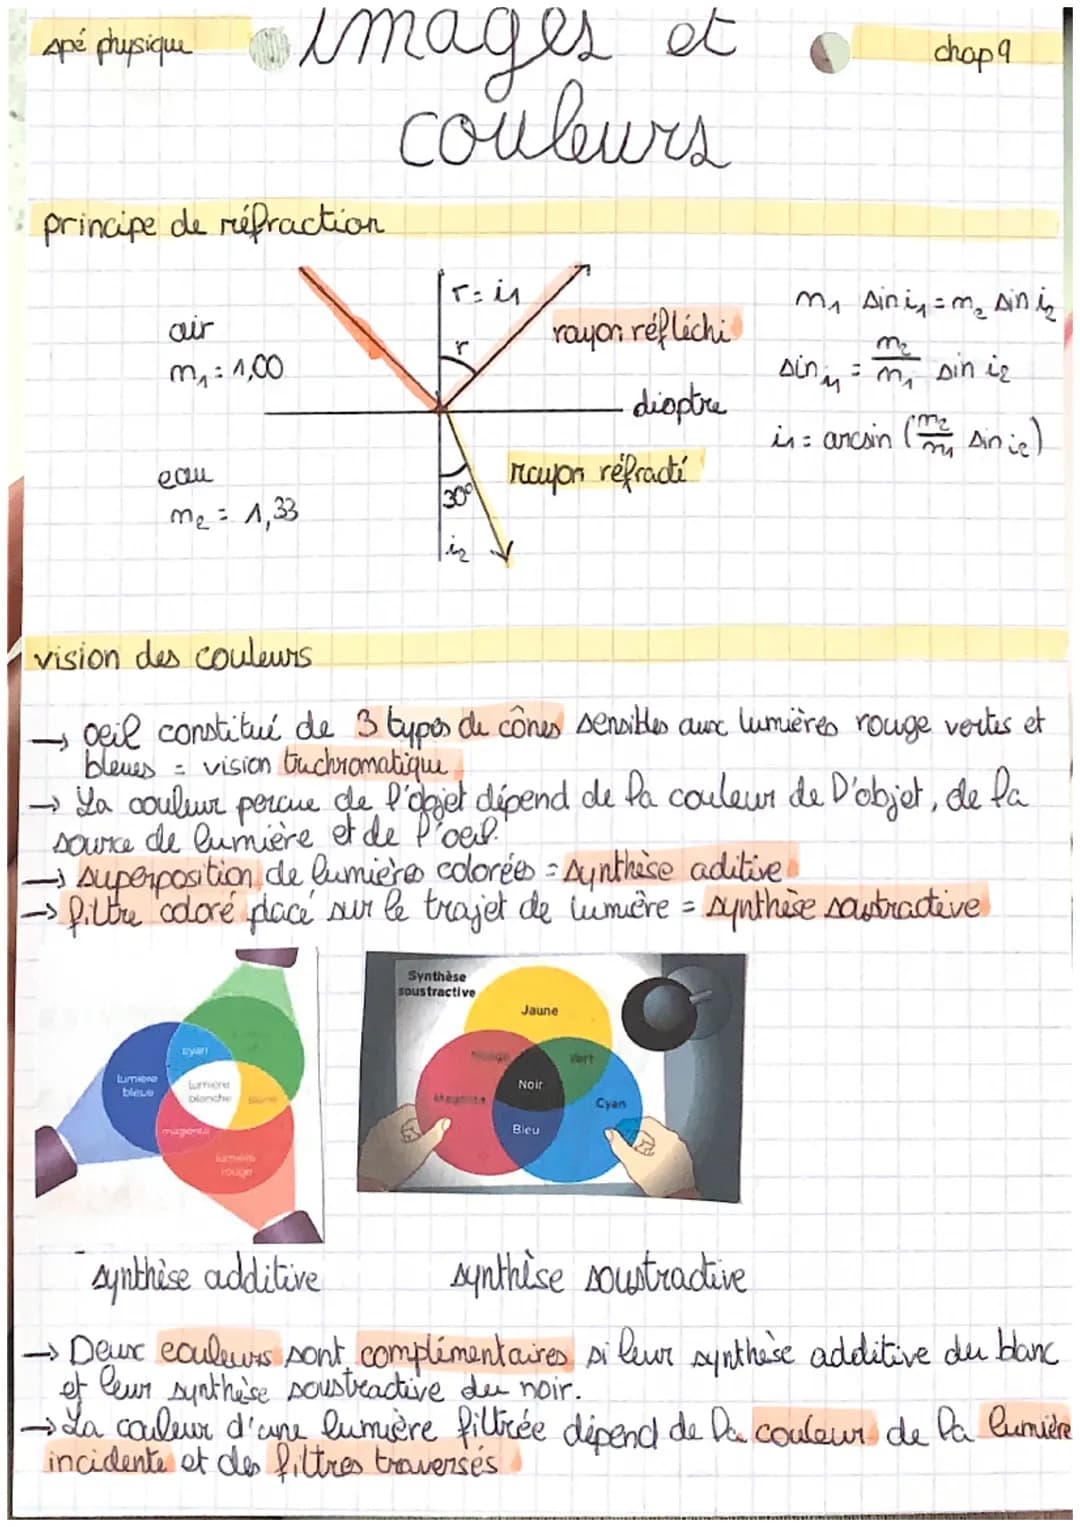 spé physique
images et
chap 9
couleurs
principe de réfraction
r = i1
n1 sin i1 = n2 sin i2
air
rayon réfléchi
r
n1 = 1,00
sin i1 = n2/n1 sin i2
dioptre
i1 = arcsin (n2/n1 sin i2)
eau
rayon réfracté
30°
n2 = 1,33
i2
vision des couleurs
→ oeil constitué de 3 types de cônes sensibles aux lumières rouge vertes et
bleues = vision trichromatique
→ La couleur percue de l'objet dépend de la couleur de l'objet, de la
source de lumière et de l'oeil.
→ superposition de lumières colorées = synthèse aditive
→ filtre coloré placé sur le trajet de lumière = synthèse soustractive
Synthèse
soustractive
Jaune
cyan
Rouge
Vert
lumière
bleue
lumière
blanche
jaune
Noir
Magenta
Cyan
magenta
Bleu
lumière
rouge
synthèse additive
synthèse soustractive
→ Deux couleurs sont complémentaires si leur synthèse additive du blanc
et leur synthèse soustractive du noir.
→ La couleur d'une lumière filtrée dépend de la couleur de la lumière
incidente et des filtres traversés